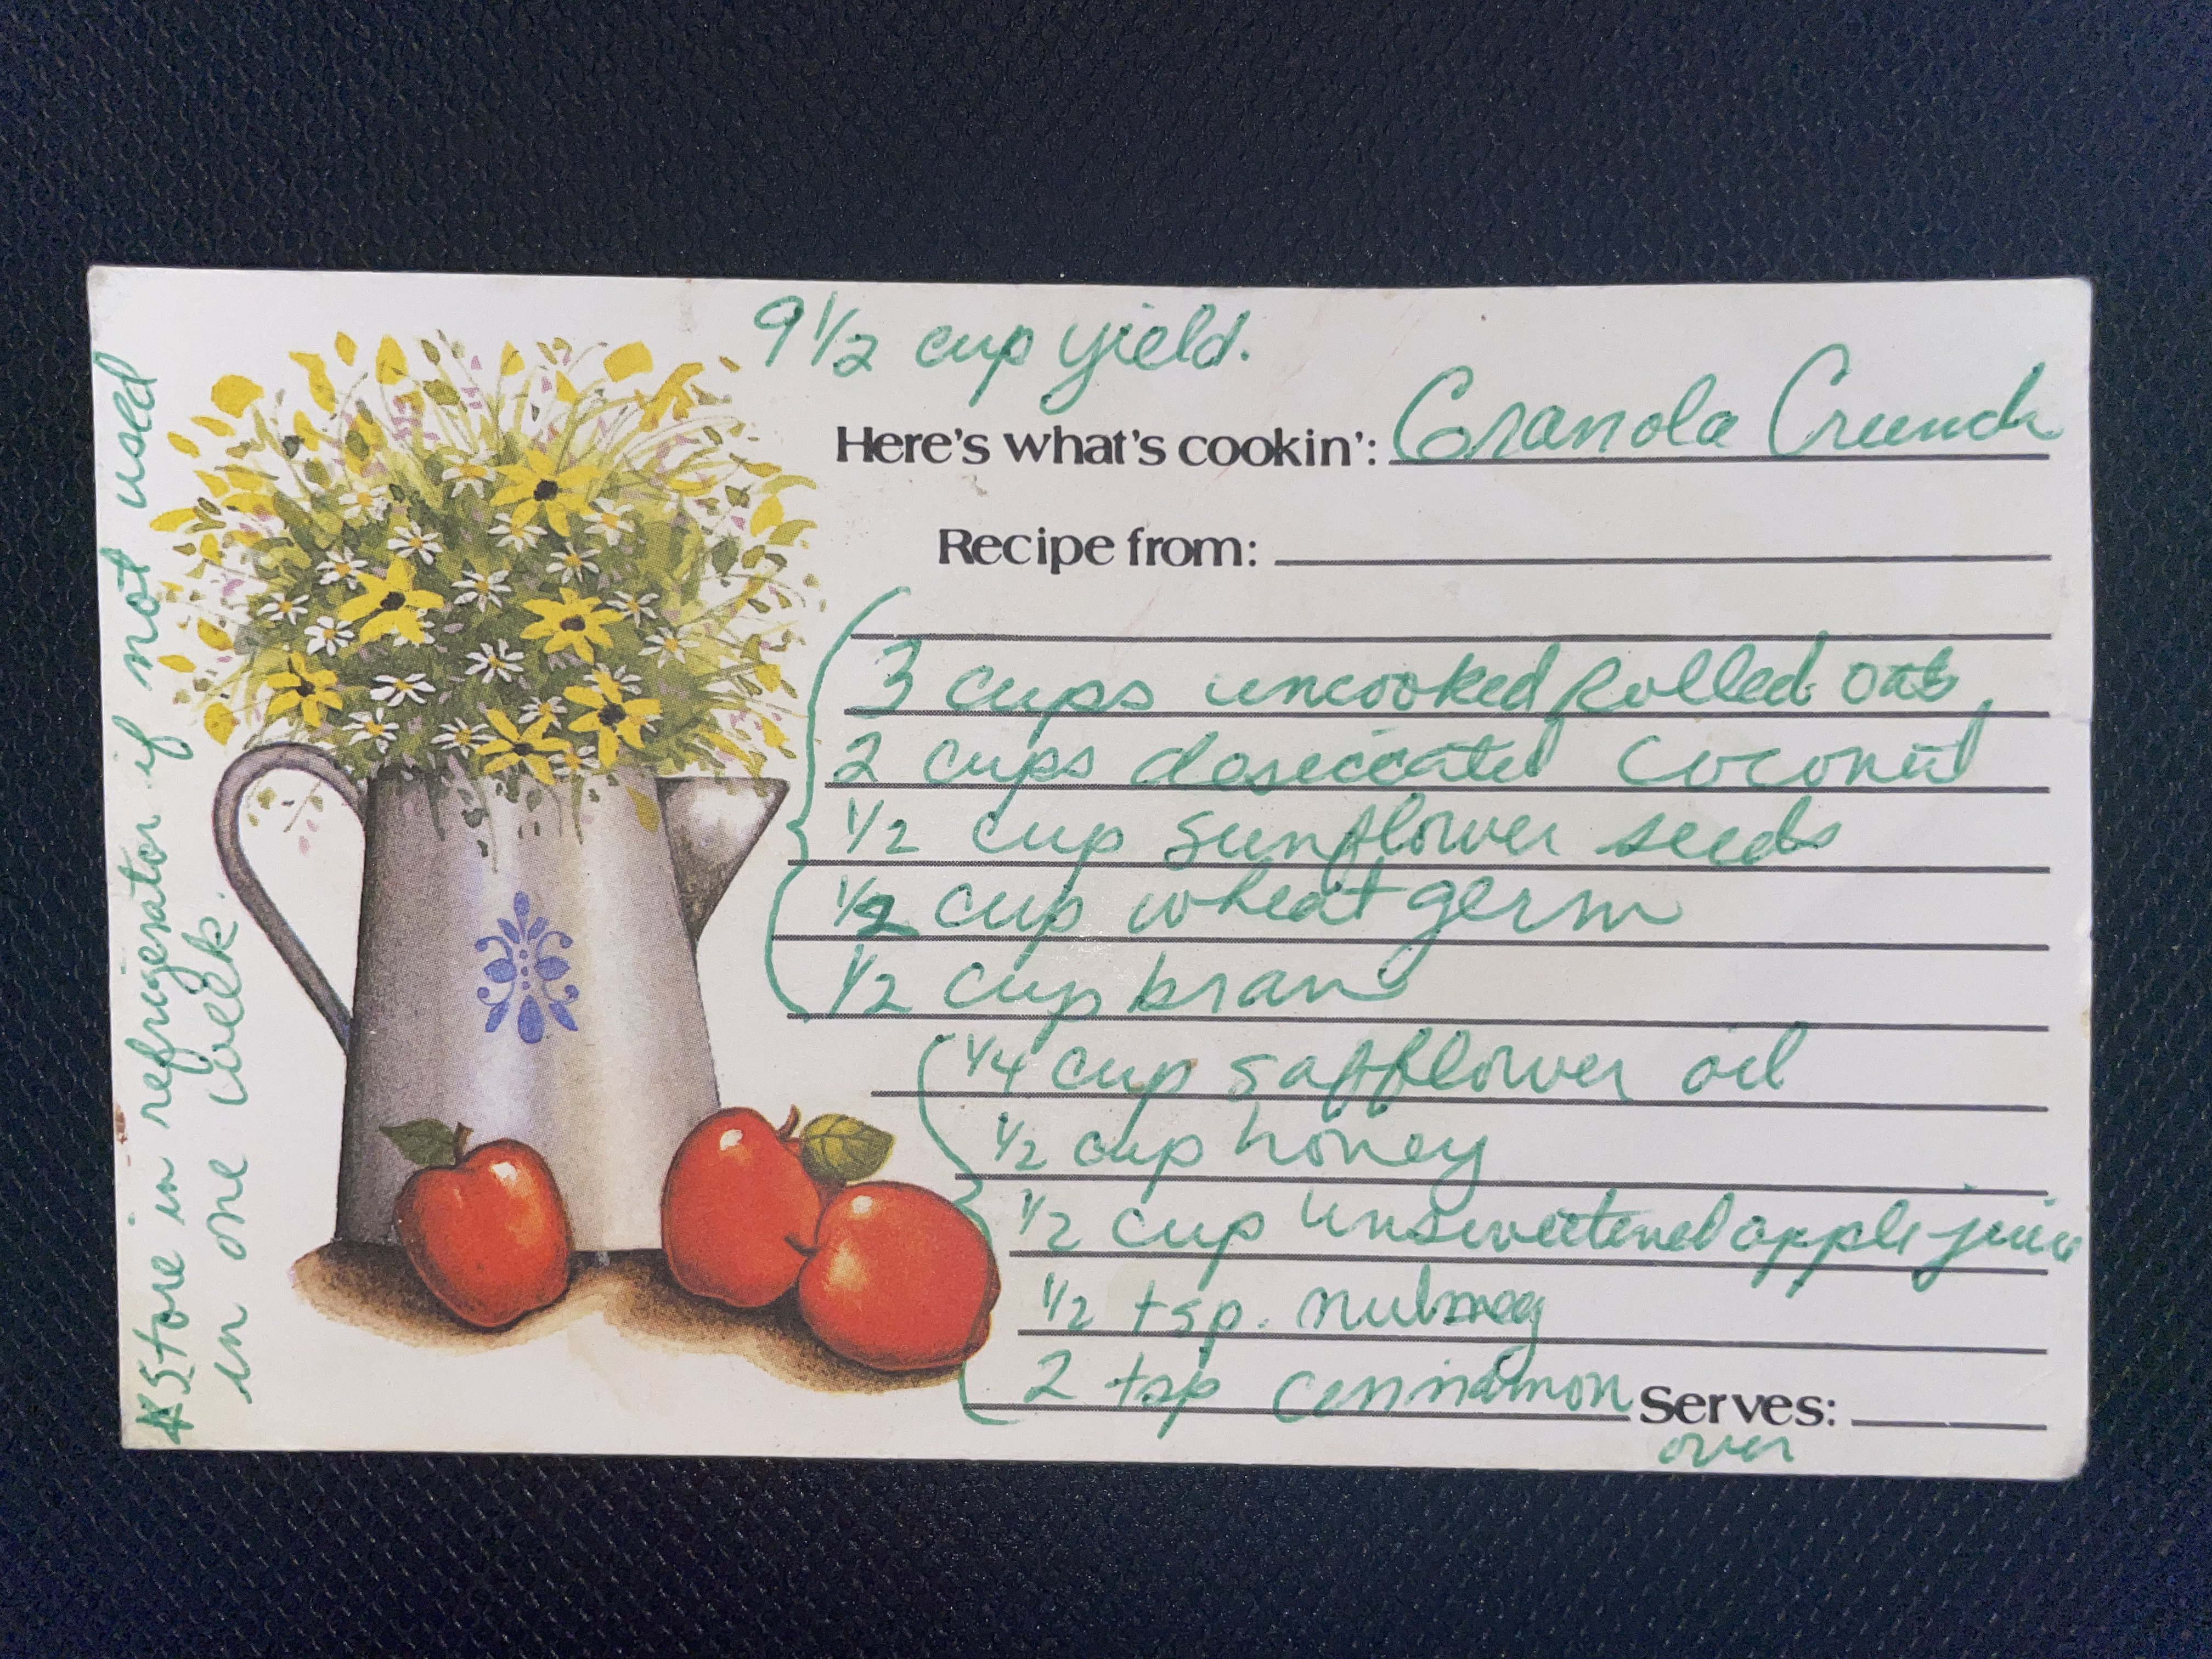 9 1/2 cup yield.
Here's what's cookin': Granola Crunch
Recipe from:
3 cups uncooked rolled oats
2 cups desiccated coconut
1/2 cup sunflower seeds
1/2 cup wheat germ
1/2 cup bran
1/4 cup safflower oil
1/2 cup honey
1/2 cup unsweetened apple juice
1/2 tsp. nutmeg
2 tsp cinnamon
Serves:
over
*Store in refrigerator if not used
in one week.